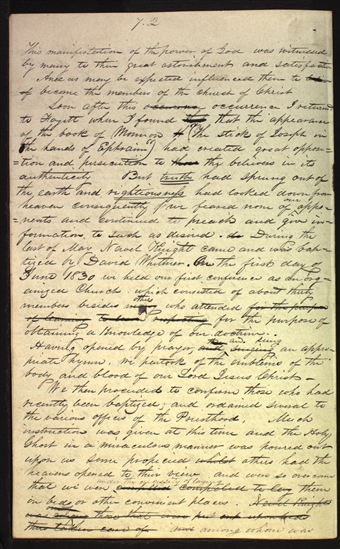 7.2
This manifestation of the power of God was witnessed
by many to their great astonishment and satisfaction
And as may be expected influenced them to
become the members of the church of Christ
Soon after this occurrence I returned
to Fayette when I found that the appearance
of the book of Mormon ("the stick of Joseph in
the hands of Ephraim") had created great oppo=
=sition and persecution to the believers in its
authenticity. But truth had sprung out of
the earth and righteousness had looked down from
heaven consequently we feared none of oppo-
nents and continued to preach and give in-
formation to such as desired. During the
last of May Newel Knight came and was bap-
tized by David Whitmer. On the first day of
June 1830 we held our first conference as an or-
ganized Church which consisted of about thirty
members besides others who attended for the purpose
of learning for the purpose of
obtaining a knowledge of our doctrine.
Having opened by prayer, and singing an appro-
priate hymn. we partook of the emblems of the
body and blood of our Lord Jesus Christ.
We then proceeded to confirm those who had
recently been baptized; and ordained several to
the various offices of the Priesthood. Much
instruction was given at the time and the Holy
Ghost in a miraculous manner was poured out
upon us some prophecied whilst others had the
heavens opened to their view and were so overcome
that we were compelled to lay them
on beds or other convenient places. Newel Knight
was among them
this taken care of and among whom was